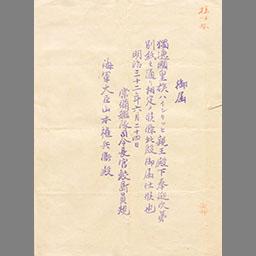 御届
獨逸國皇族ハインリッヒ親王殿下奉迎次第
別紙之通リ相定メ候條此段御届仕候也
明治三十二年六月二十四日
常備艦隊司令長官鮫島員規
海軍大臣山本権兵衛殿